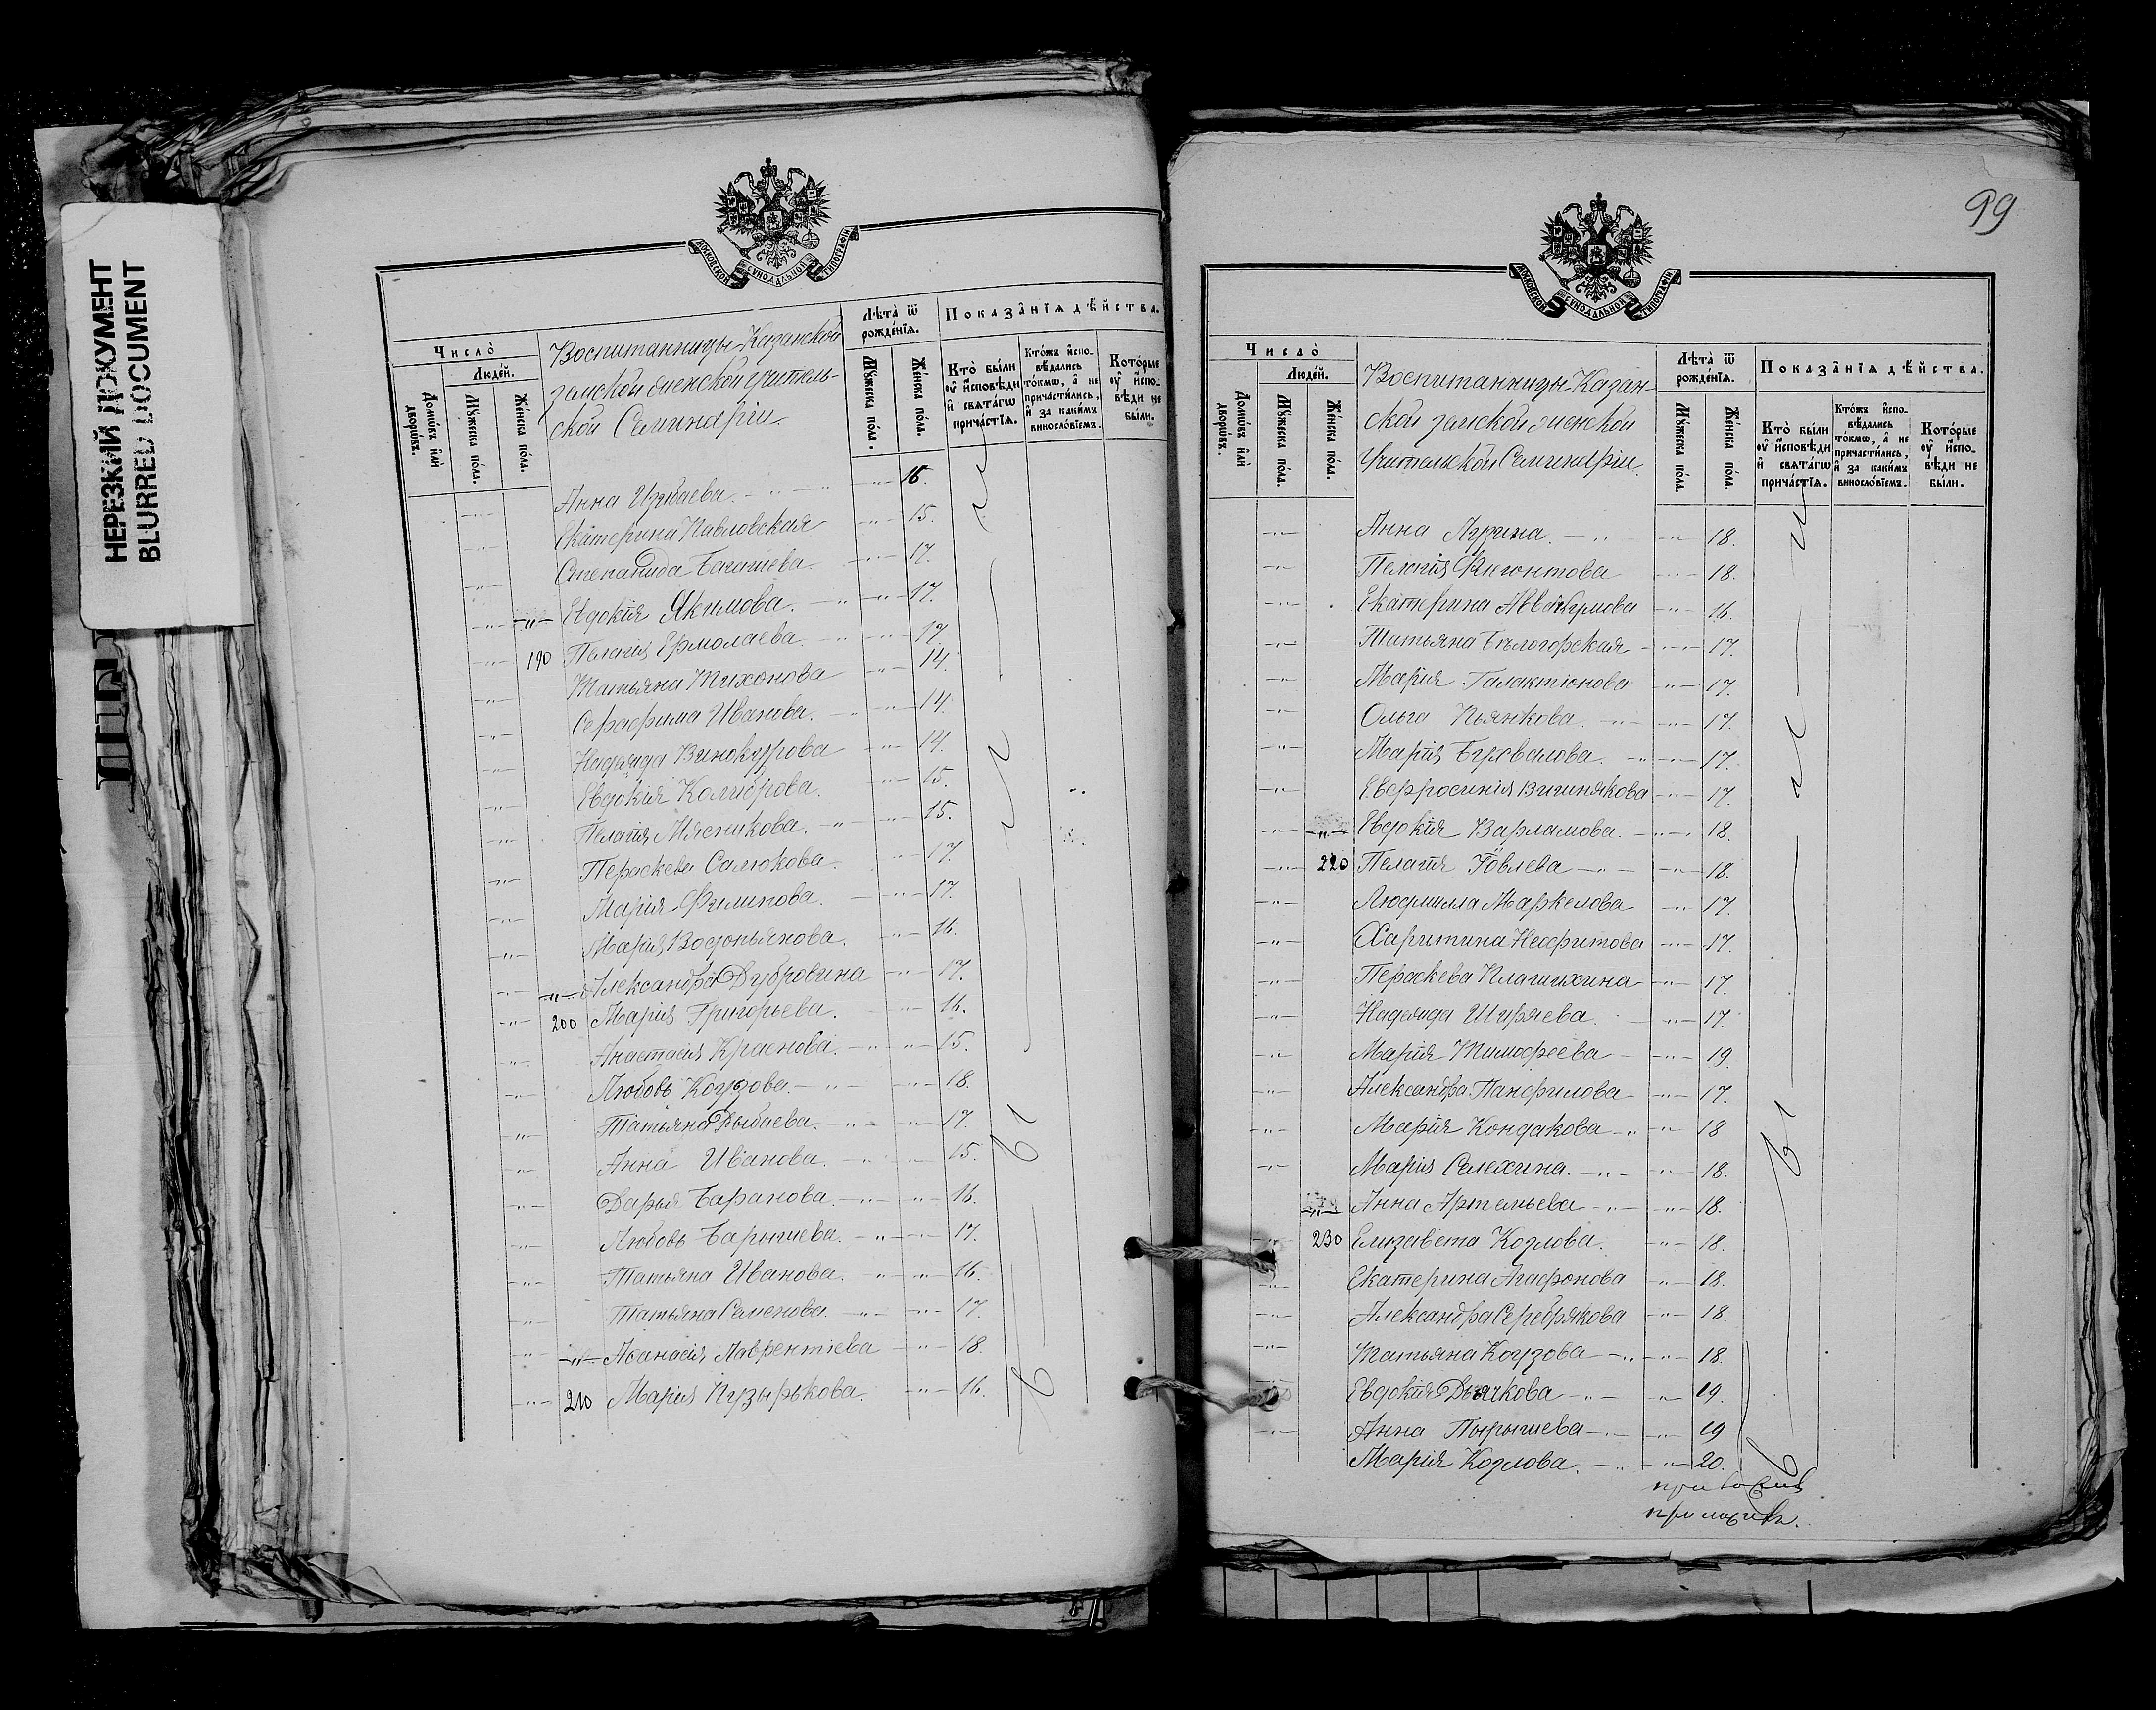 НЕРЕЗКИЙ ДОКУМЕНТ
BLURRED DOCUMENT
МОСКОВСКОЙ СѴНОДАЛЬНОЙ ТИПОГРАФІИ
Число̀
Людей.
Домѡвъ и҆лѝ дворѡвъ.
Мꙋжеска пола.
Женска пола.
Воспитанницы Казанской
земской женской учитель-
ской Семинаріи.
Лѣта̀ ѿ рожденїѧ.
Мꙋжеска пола.
Женска пола.
Показанїѧ дѣйства.
Кто̀ были ᲂу҆ и҆сповѣди и҆ свѧтагѡ причастїѧ.
Ктожъ и҆споведались токмѡ, а҆ не причастились, и҆ за какимъ винословїемъ.
Которые ᲂу҆ и҆сповѣди не были.
Анна Изибаева. 16.
Екатерина Павловская 15.
Степанида Багашева. 17.
Евдокія Якимова. 17.
190 Пелагія Ермолаева. 17.
Татьяна Тихонова 14.
Серафима Иванова. 14.
Надежда Винокурова 14.
Евдокія Колиброва. 15.
Пелагія Мясникова. 15.
Пераскева Салюкова. 17.
Марія Филипова. 17.
Марія Водопьянова. 16.
Александра Дубровина 17.
200 Марія Григорьева. 16.
Анастасія Краснова. 15.
Любовь Коузова. 18.
Татьяна Рыбаева. 17.
Анна Иванова. 15.
Дарья Баранова. 16.
Любовь Барышева. 17.
Татьяна Иванова. 16.
Татьяна Семенова. 17.
Аѳанасія Лаврентіева 18.
210 Марія Пузырькова. 16.
99
МОСКОВСКОЙ СѴНОДАЛЬНОЙ ТИПОГРАФІИ
Число̀
Людей.
Домѡвъ и҆лѝ дворѡвъ.
Мꙋжеска пола.
Женска пола.
Воспитанницы Казан-
ской земской женской
Учительской Семинаріи.
Лѣта̀ ѿ рожденїѧ.
Мꙋжеска пола.
Женска пола.
Показанїѧ дѣйства.
Кто̀ были ᲂу҆ и҆сповѣди и҆ свѧтагѡ причастїѧ.
Ктожъ и҆споведались токмѡ, а҆ не причастились, и҆ за какимъ винословїемъ.
Которые ᲂу҆ и҆сповѣди не были.
Анна Лузина. 18.
Пелагія Фигонтова 18.
Екатерина Аввакумова 16.
Татьяна Бѣлогорская 17.
Марія Галактіонова 17.
Ольга Пьянкова. 17.
Марія Бухвалова. 17.
Евфросинія Вишнякова 17.
Евдокія Варламова. 18.
220 Пелагія Іовлева 18.
Людмилла Маркелова 17.
Харитина Неофитова 17.
Пераскева Плашихина 17.
Надежда Ширяева. 17.
Марія Тимофеева 19.
Александра Панфилова 17.
Марія Кондакова 18
Марія Селехина. 18.
Анна Артемьева 18.
230 Елизавета Козлова. 18.
Екатерина Агафонова 18.
Александра Серебрякова 18.
Татьяна Коузова 18.
Евдокія Дьячкова 19.
Анна Пырышева 19
Марія Козлова. 20.